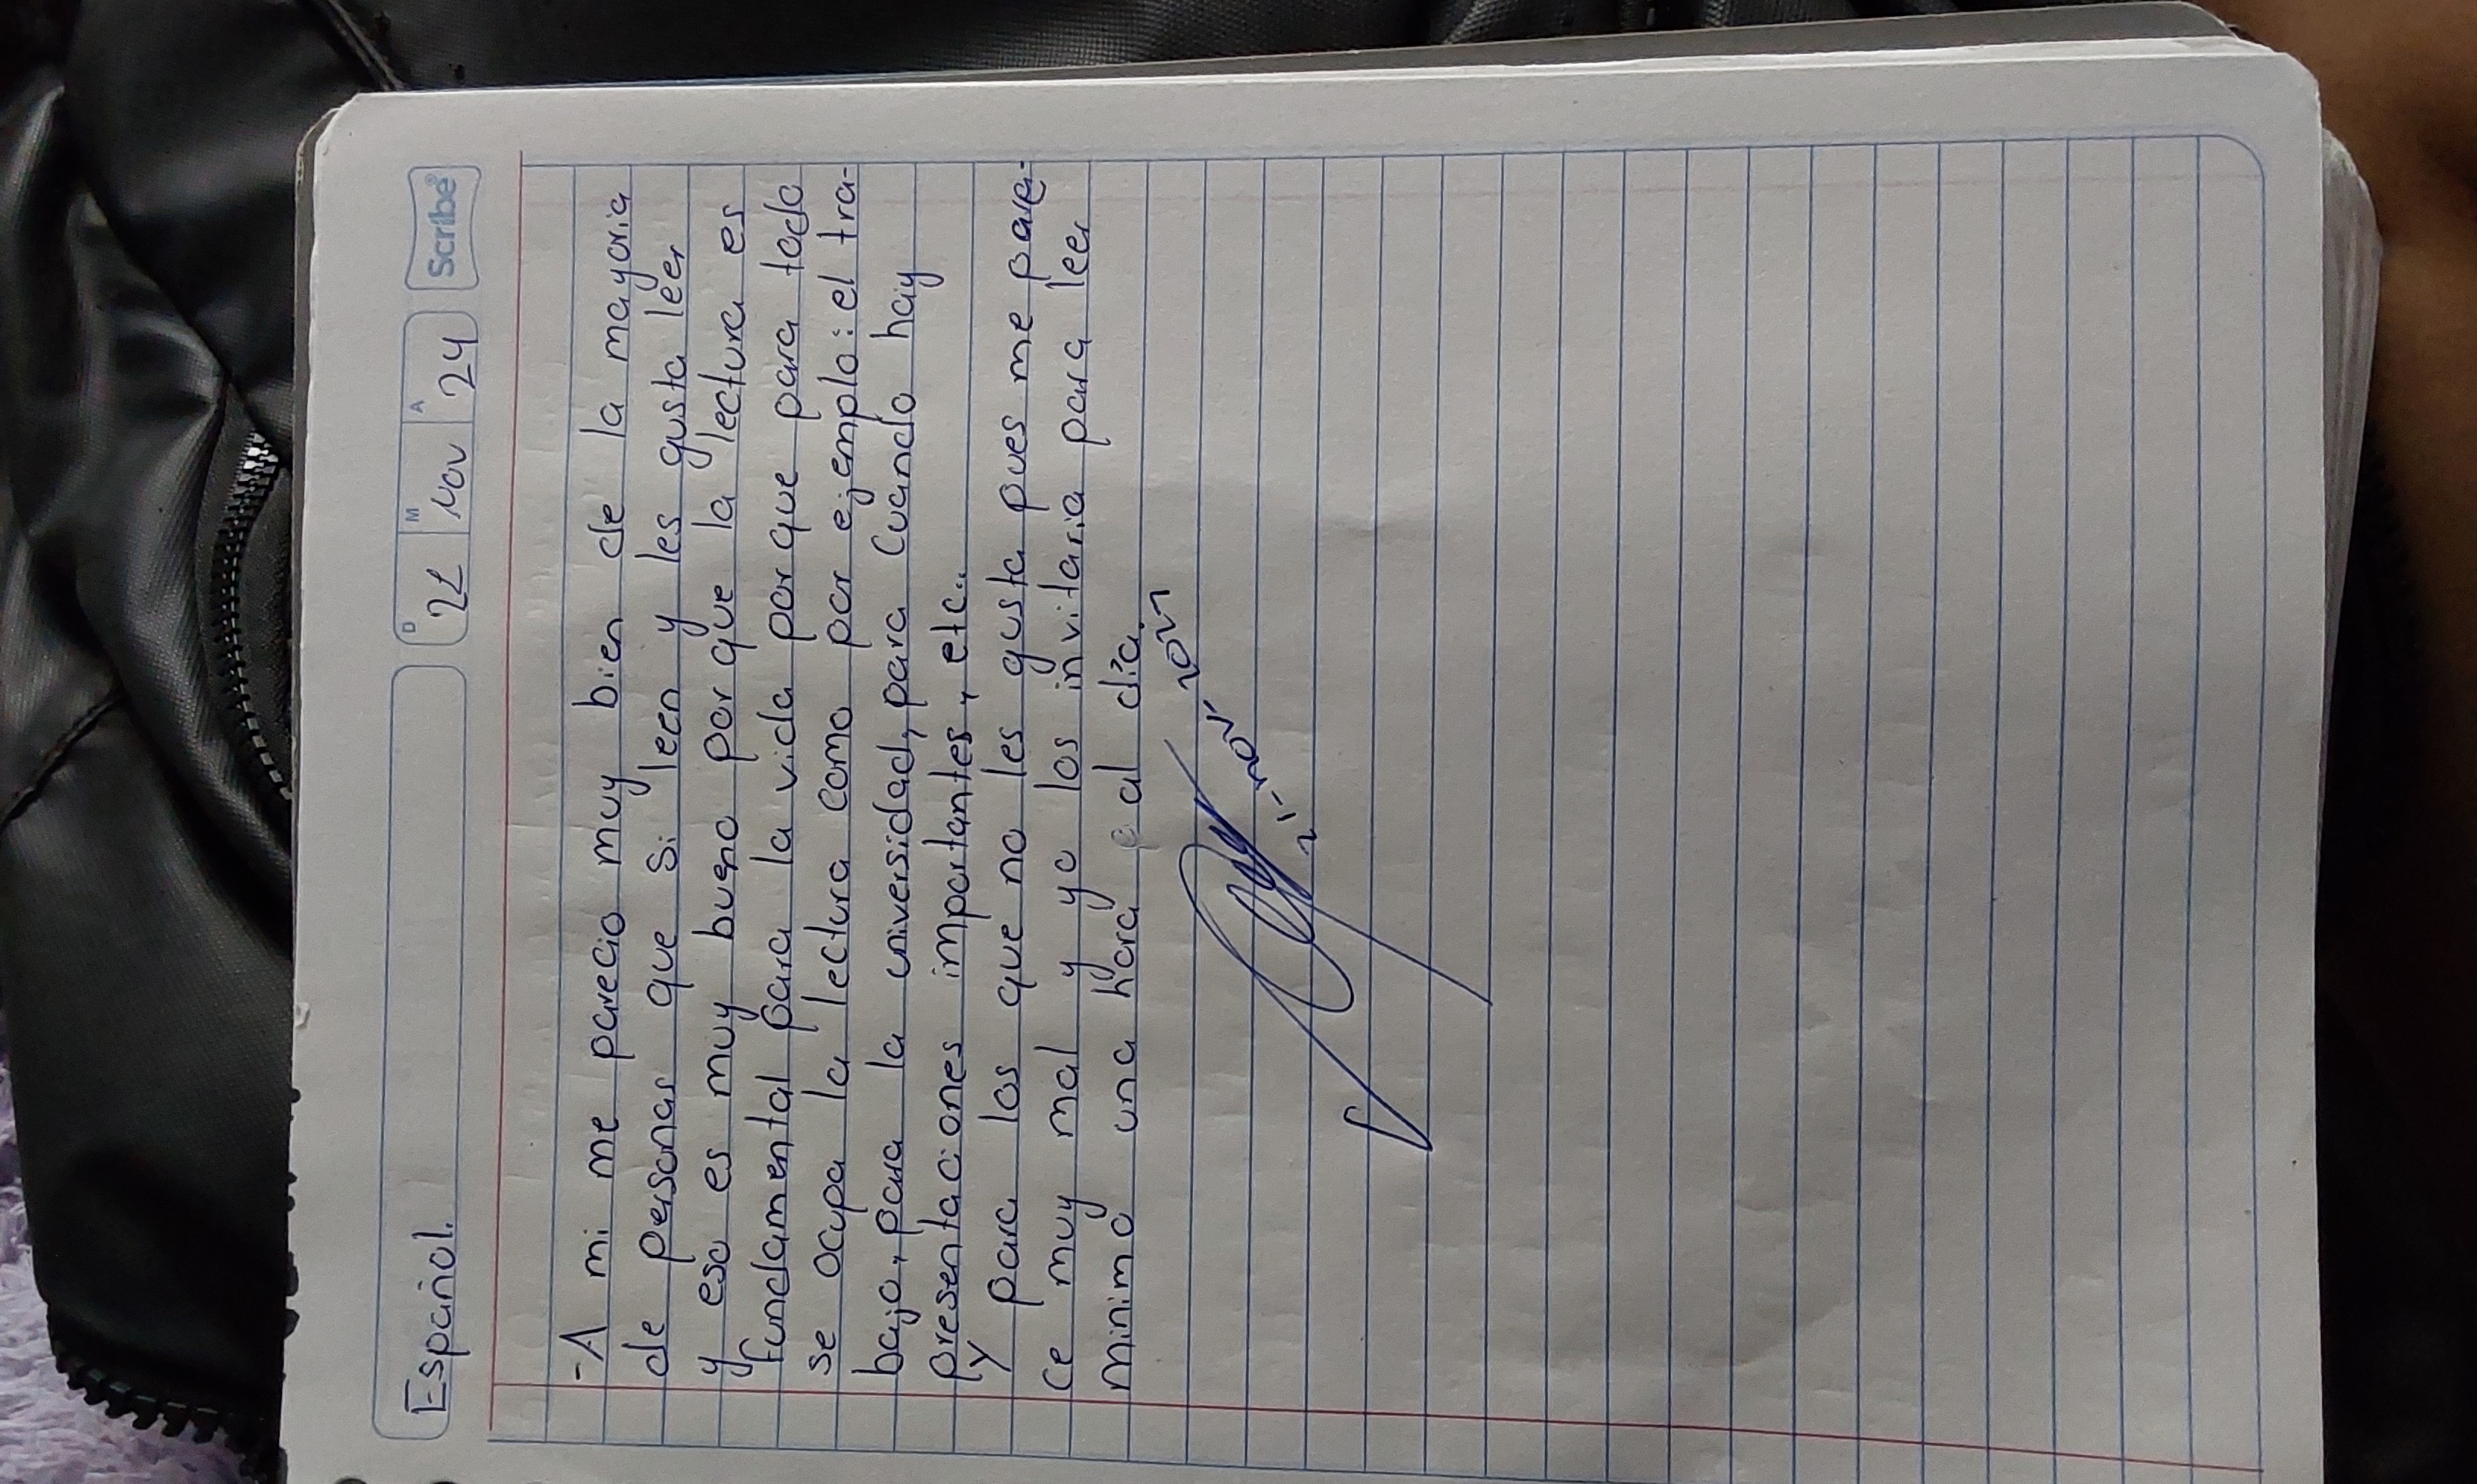 Español.
D M A
21 Nov 24
Scribe®
- A mi me parecio muy bien de la mayoria
de personas que si leen y les gusta leer
y eso es muy bueno por que la lectura es
fundamental para la vida por que para todo
se ocupa la lectura como por ejemplo: el tra-
bajo, para la universidad, para cuando hay
presentaciones importantes, etc..
Y para los que no les gusta pues me pare-
ce muy mal y yo los invitaria para leer
minimo una hora al día.
21-nov-